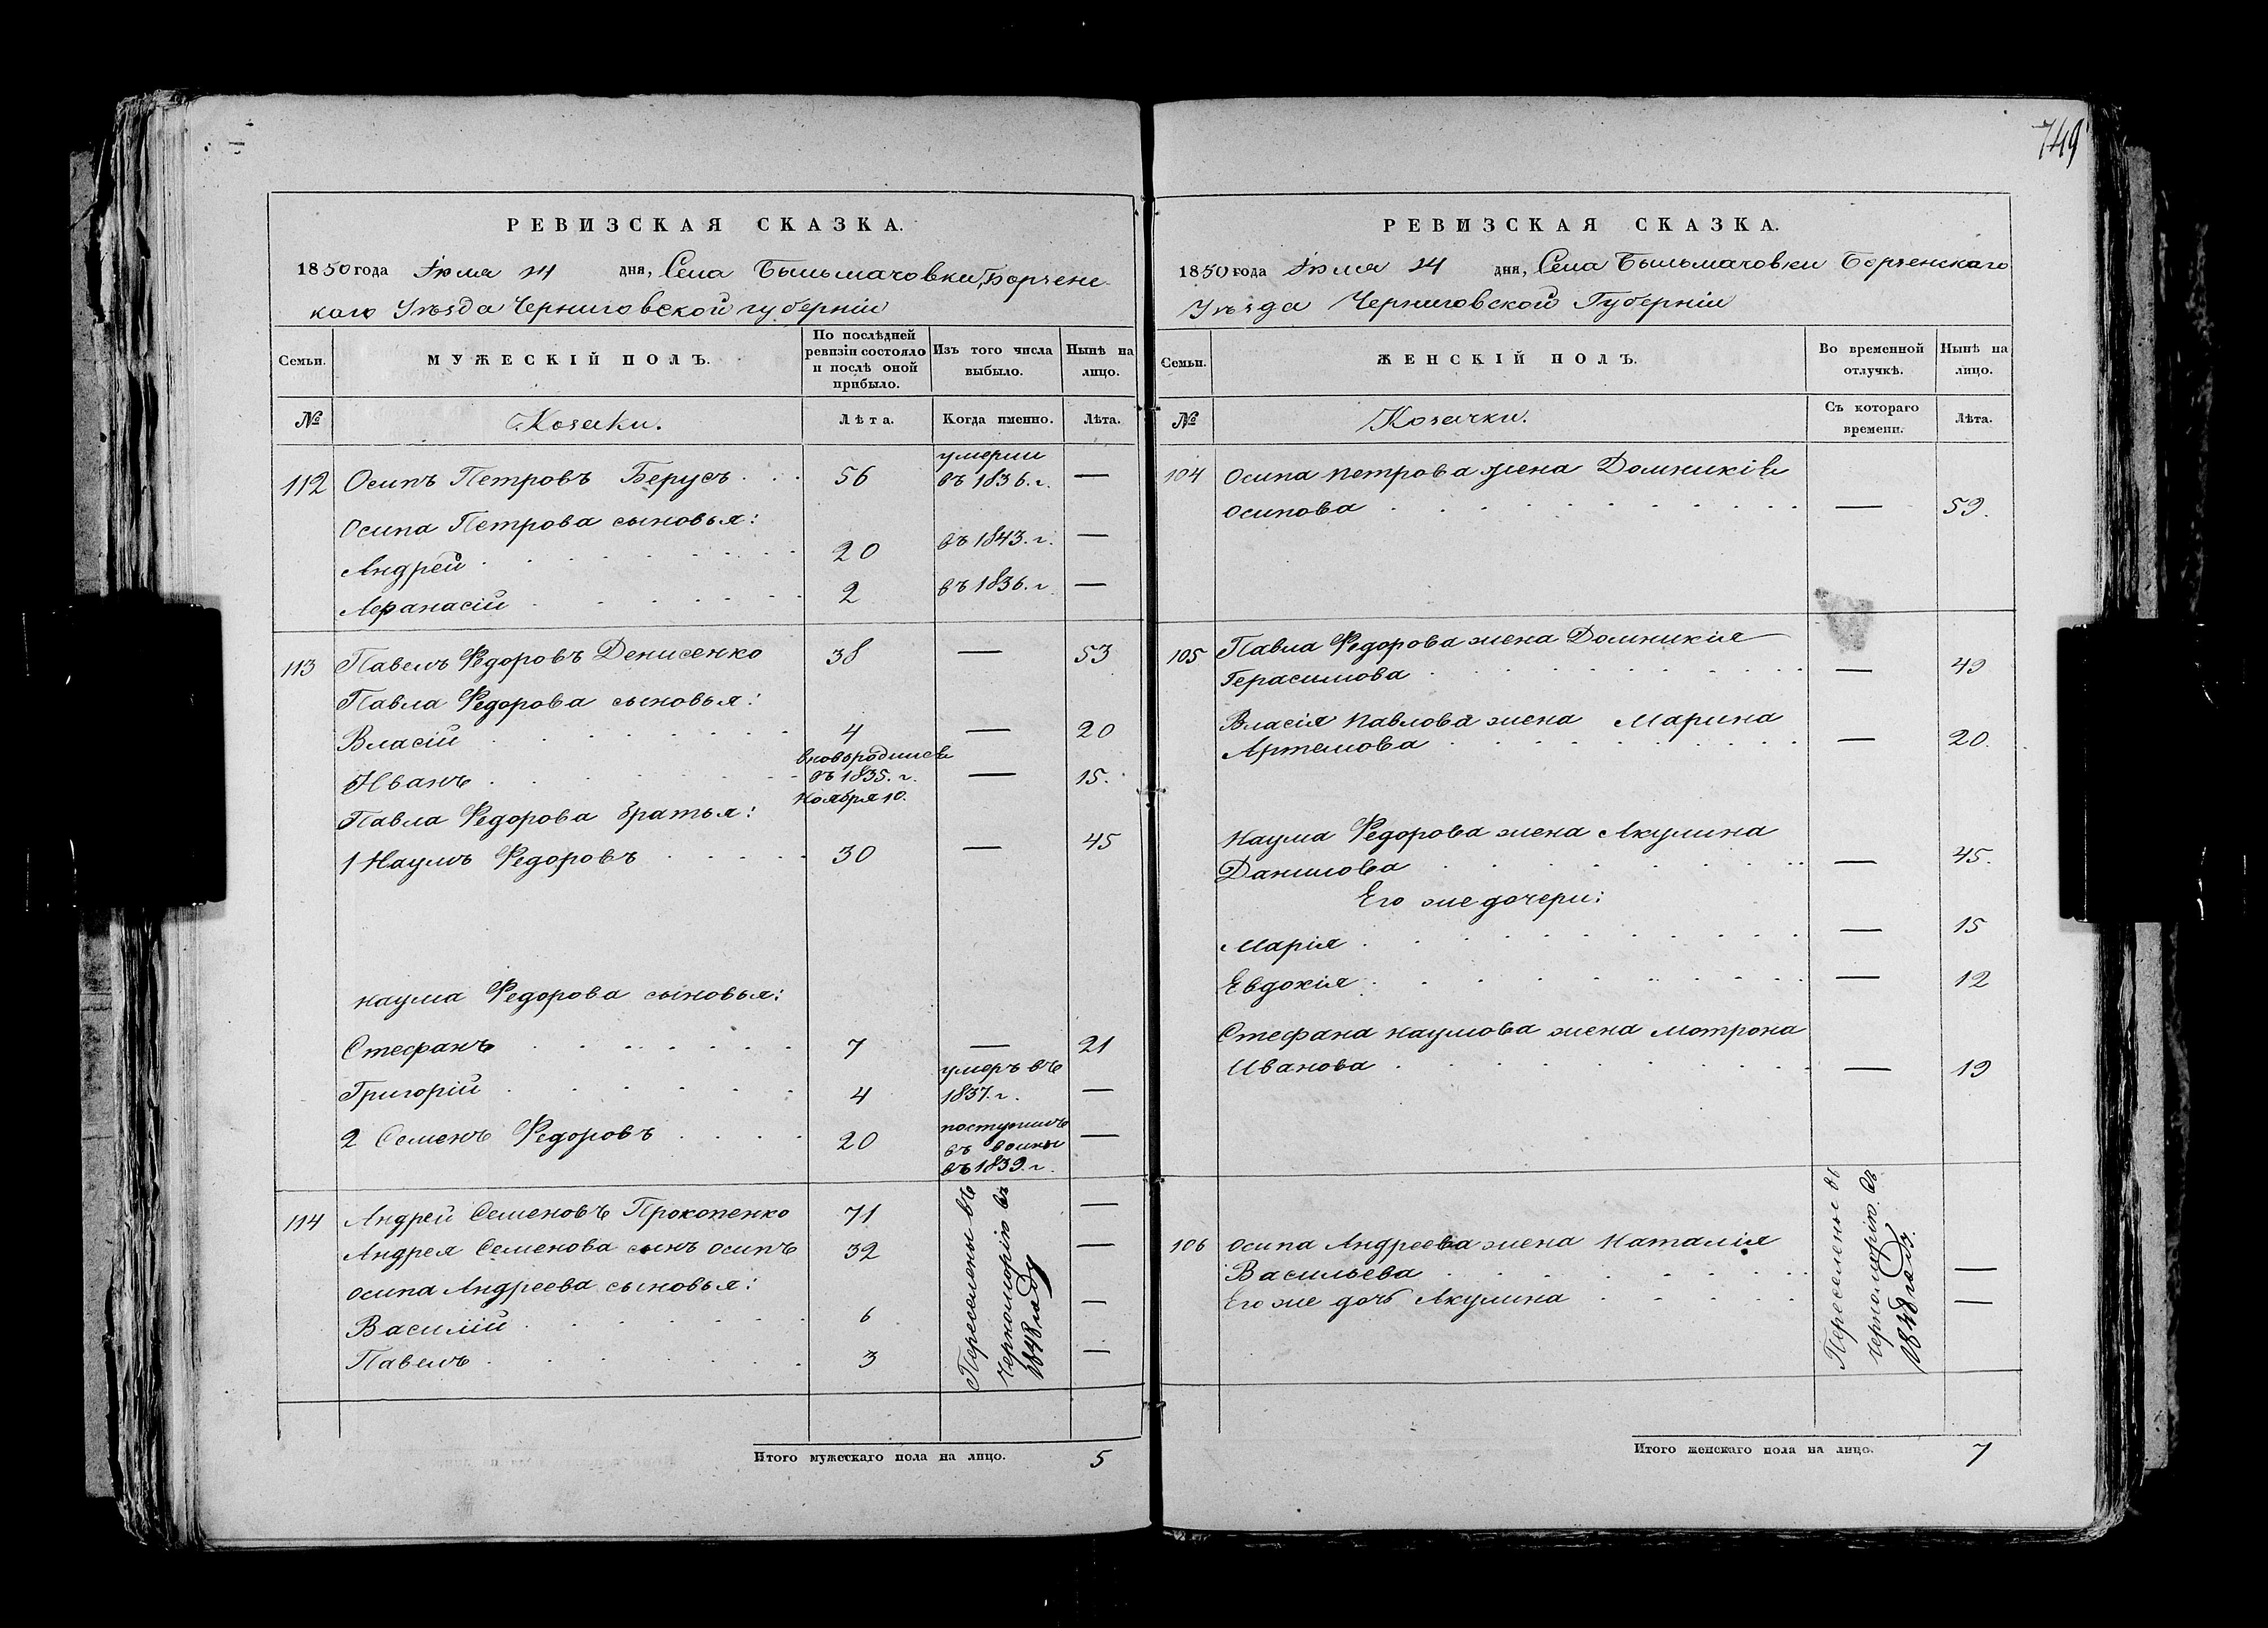 749
РЕВИЗСКАЯ СКАЗКА.
1850 года Іюля 14 дня, Села Бѣльмачовки, Борзенс-
каго Уѣзда Черниговской губерніи
Семьи.
МУЖЕСКІЙ ПОЛЪ.
По послѣдней ревизіи состояло и послѣ оной прибыло.
Изъ того числа выбыло.
Нынѣ на лицо.
№
Козаки.
Лѣта.
Когда именно.
Лѣта.
умерли
112 Осипъ Петровъ Берусъ 56 въ 1836. г. —
Осипа Петрова сыновья:
Андрей 20 въ 1843. г. —
Афанасій 2 въ 1836. г. —
113 Павелъ Федоровъ Денисенко 38 — 53
Павла Федорова сыновья:
Власій 4 — 20
вновьродился
Иванъ въ 1835. г. — 15.
Ноября 10.
Павла Федорова братья:
1 Наумъ Федоровъ 30 — 45
Наума Федорова сыновья:
Стефанъ 7 — 21
умеръ въ
Григорій 4 1837. г. —
2 Семенъ Федоровъ 20 поступилъ —
въ воины
въ 1839. г.
114 Андрей Семеновъ Прокопенко 71 —
Андрея Семенова сынъ Осипъ 32 —
Осипа Андреева сыновья:
Василій 6 —
Павелъ 3 —
Переселены въ
Черноморію въ
1848 году
Итого мужескаго пола на лицо. 5
РЕВИЗСКАЯ СКАЗКА.
1850 года Іюля 14 дня, Села Бѣльмачовки Борзенскаго
Уѣзда Черниговской Губерніи
Семьи.
ЖЕНСКІЙ ПОЛЪ.
Во временной отлучкѣ.
Нынѣ на лицо.
№
Козачки.
Съ котораго времени.
Лѣта.
104 Осипа Петрова жена Домникія
Осипова — 59.
105 Павла Федорова жена Домникія
Герасимова — 49
Власія Павлова жена Марина
Артемова — 20.
Наума Федорова жена Акулина
Данилова — 45.
Его же дочери:
Марія — 15
Евдокія — 12
Стефана Наумова жена Мотрона
Иванова — 19
106 Осипа Андреева жена Наталія
Васильева —
Его же дочь Акулина —
Переселены въ
Черноморію въ
1848 году.
Итого женскаго пола на лицо. 7